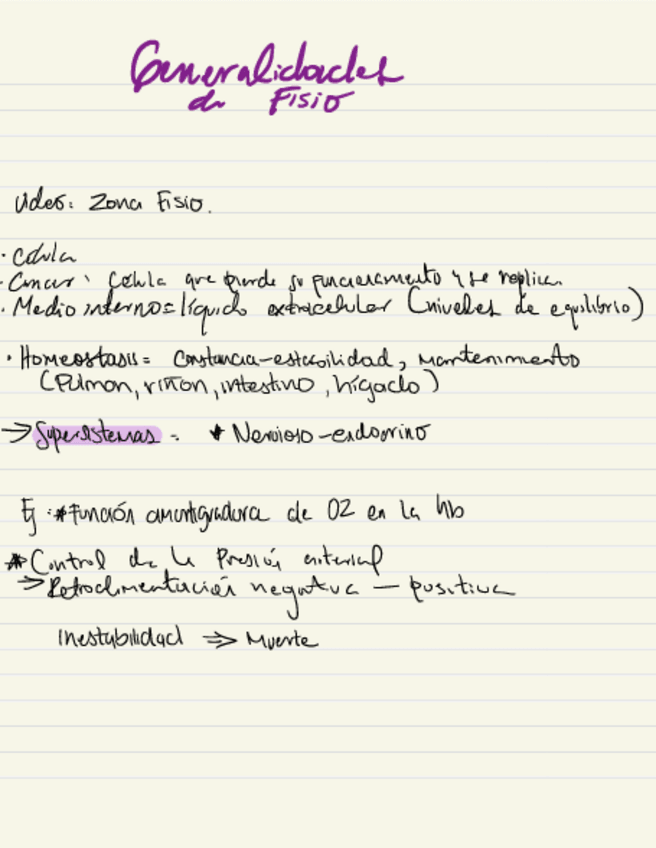 Generalidades
de Fisio
Video: Zona Fisio.
· Célula
· Cancer: Célula que pierde su funcionamiento y se replica
· Medio interno = líquido extracelular (niveles de equilibrio)
· Homeostasis = Constancia-estabilidad, mantenimiento
(Pulmon, riñon, intestino, hígado)
→ Supersistemas = * Nervioso-endocrino
Ej: * Función amortiguadora de O2 en la hb
* Control de la Presión arterial
⇒ Retroalimentación negativa — positiva
Inestabilidad ⇒ Muerte